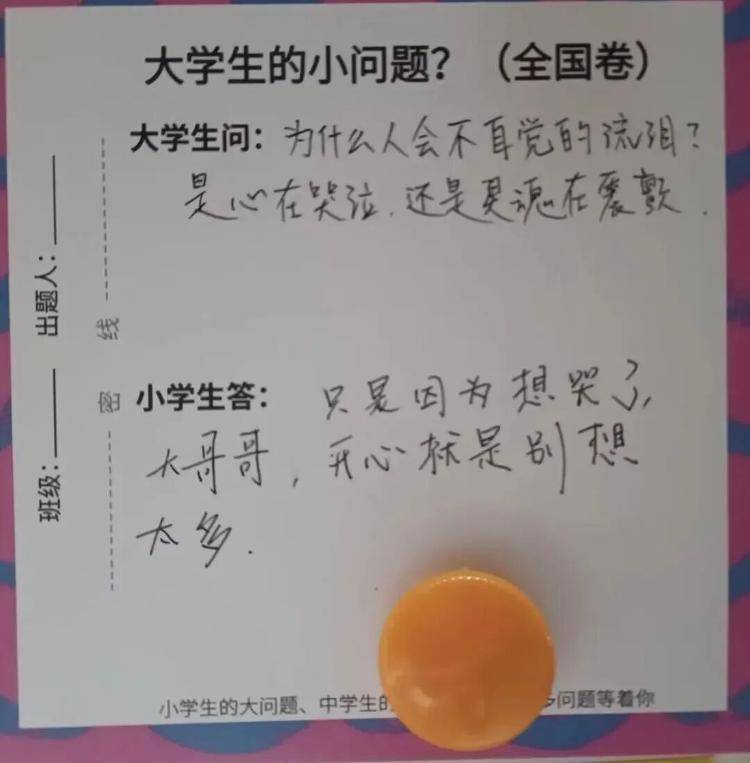 大学生的小问题？（全国卷）
大学生问：为什么人会不自觉的流泪？
是心在哭泣.还是灵魂在震颤.
出题人：
线
密
班级：
小学生答：只是因为想哭了,
大哥哥，开心就是别想
太多.
小学生的大问题、中学生的 问题等着你